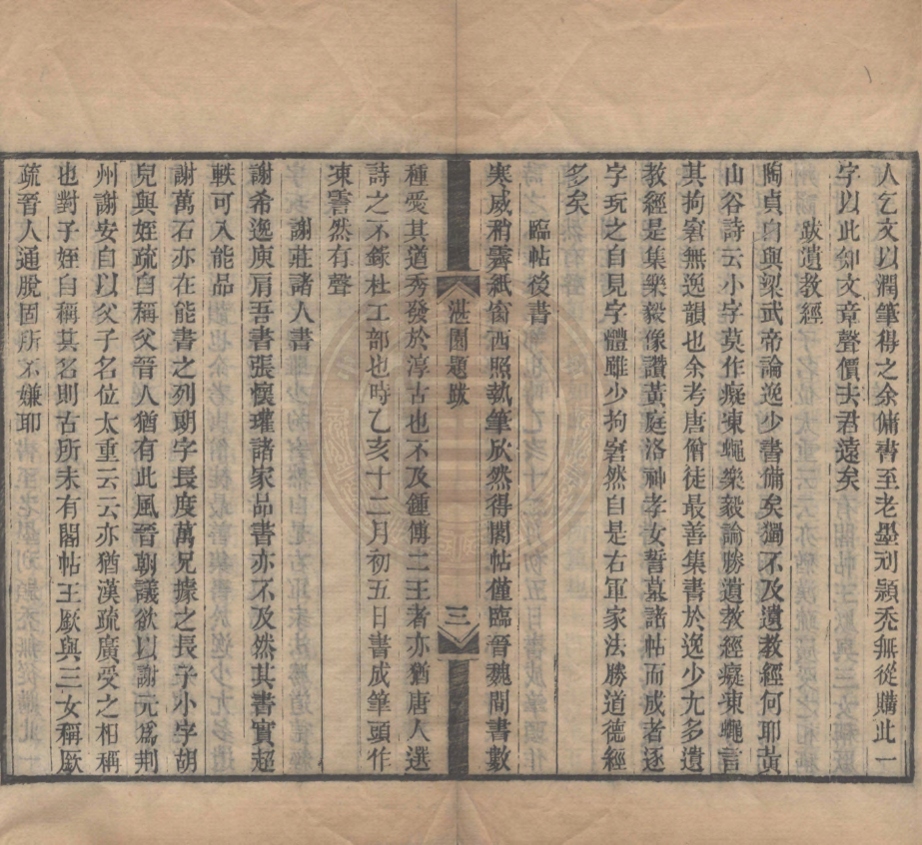 人乞文以潤筆得之余傭書至老墨刓潁禿無從購此一
字以此知文章聲價去君遠矣
跋遺教經
陶貞白與梁武帝論逸少書備矣獨不及遺教經何耶黃
山谷詩云小字莫作癡凍蠅樂毅論勝遺教經癡凍蠅言
其拘窘無逸韻也余考唐僧徒最善集書於逸少尤多遺
教經是集樂毅像讚黃庭洛神孝女誓墓諸帖而成者逐
字玩之自見字體雖少拘窘然自是右軍家法勝道德經
多矣
臨帖後書
寒威稍霽紙窗西照執筆欣然得閣帖僅臨晉魏間書數
湛園題跋
三
種愛其道秀發於淳古也不及鍾傅二王者亦猶唐人選
詩之不錄杜工部也時乙亥十二月初五日書成筆頭作
凍霅然有聲
謝莊諸人書
謝希逸庾肩吾書張懷瓘諸家品書亦不及然其書實超
軼可入能品
謝萬石亦在能書之列朗字長度萬兄據之長子小字胡
兒與姪疏自稱父晉人猶有此風晉朝議欲以謝元爲荆
州謝安自以父子名位太重云云亦猶漢疏廣受之相稱
也對子姪自稱其名則古所未有閣帖王厥與三女稱厥
疏晉人通脫固所不嫌耶